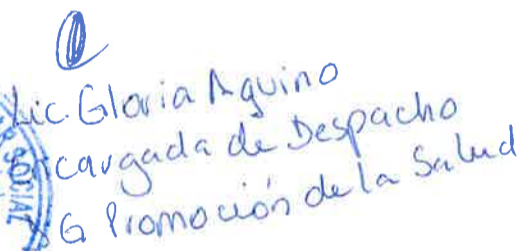 Lic. Gloria Aguino
Encargada de Despacho
DG Promoción de la Salud
SOCIAL